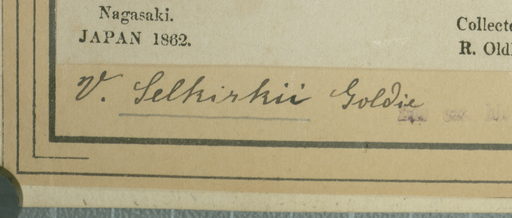 Nagasaki.
JAPAN 1862.
Collecte
R. Old
V. Selkirkii Goldie